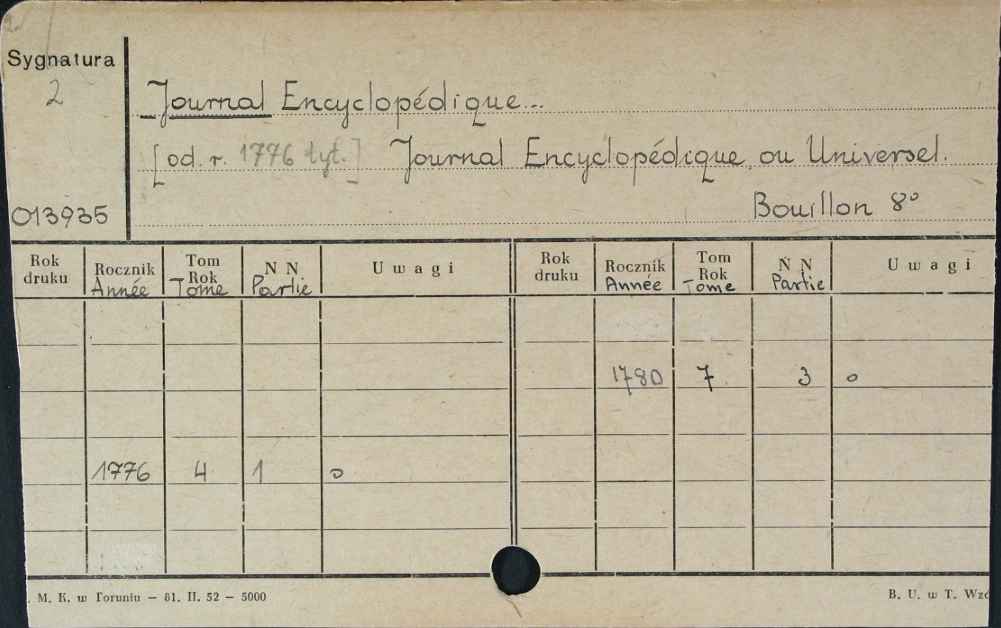 Sygnatura
2
Journal Encyclopédique...
[od. r. 1776 tyt.] Journal Encyclopédique ou Universel.
013935
Bouillon 8°
Rok druku Rocznik Année Tom Rok Tome N N Partie Uwagi Rok druku Rocznik Année Tom Rok Tome N N Partie Uwagi
1780 7 3 o
1776 4 1 o
. M. K. w Toruniu – 81. II. 52 – 5000
B. U. w T. Wzó